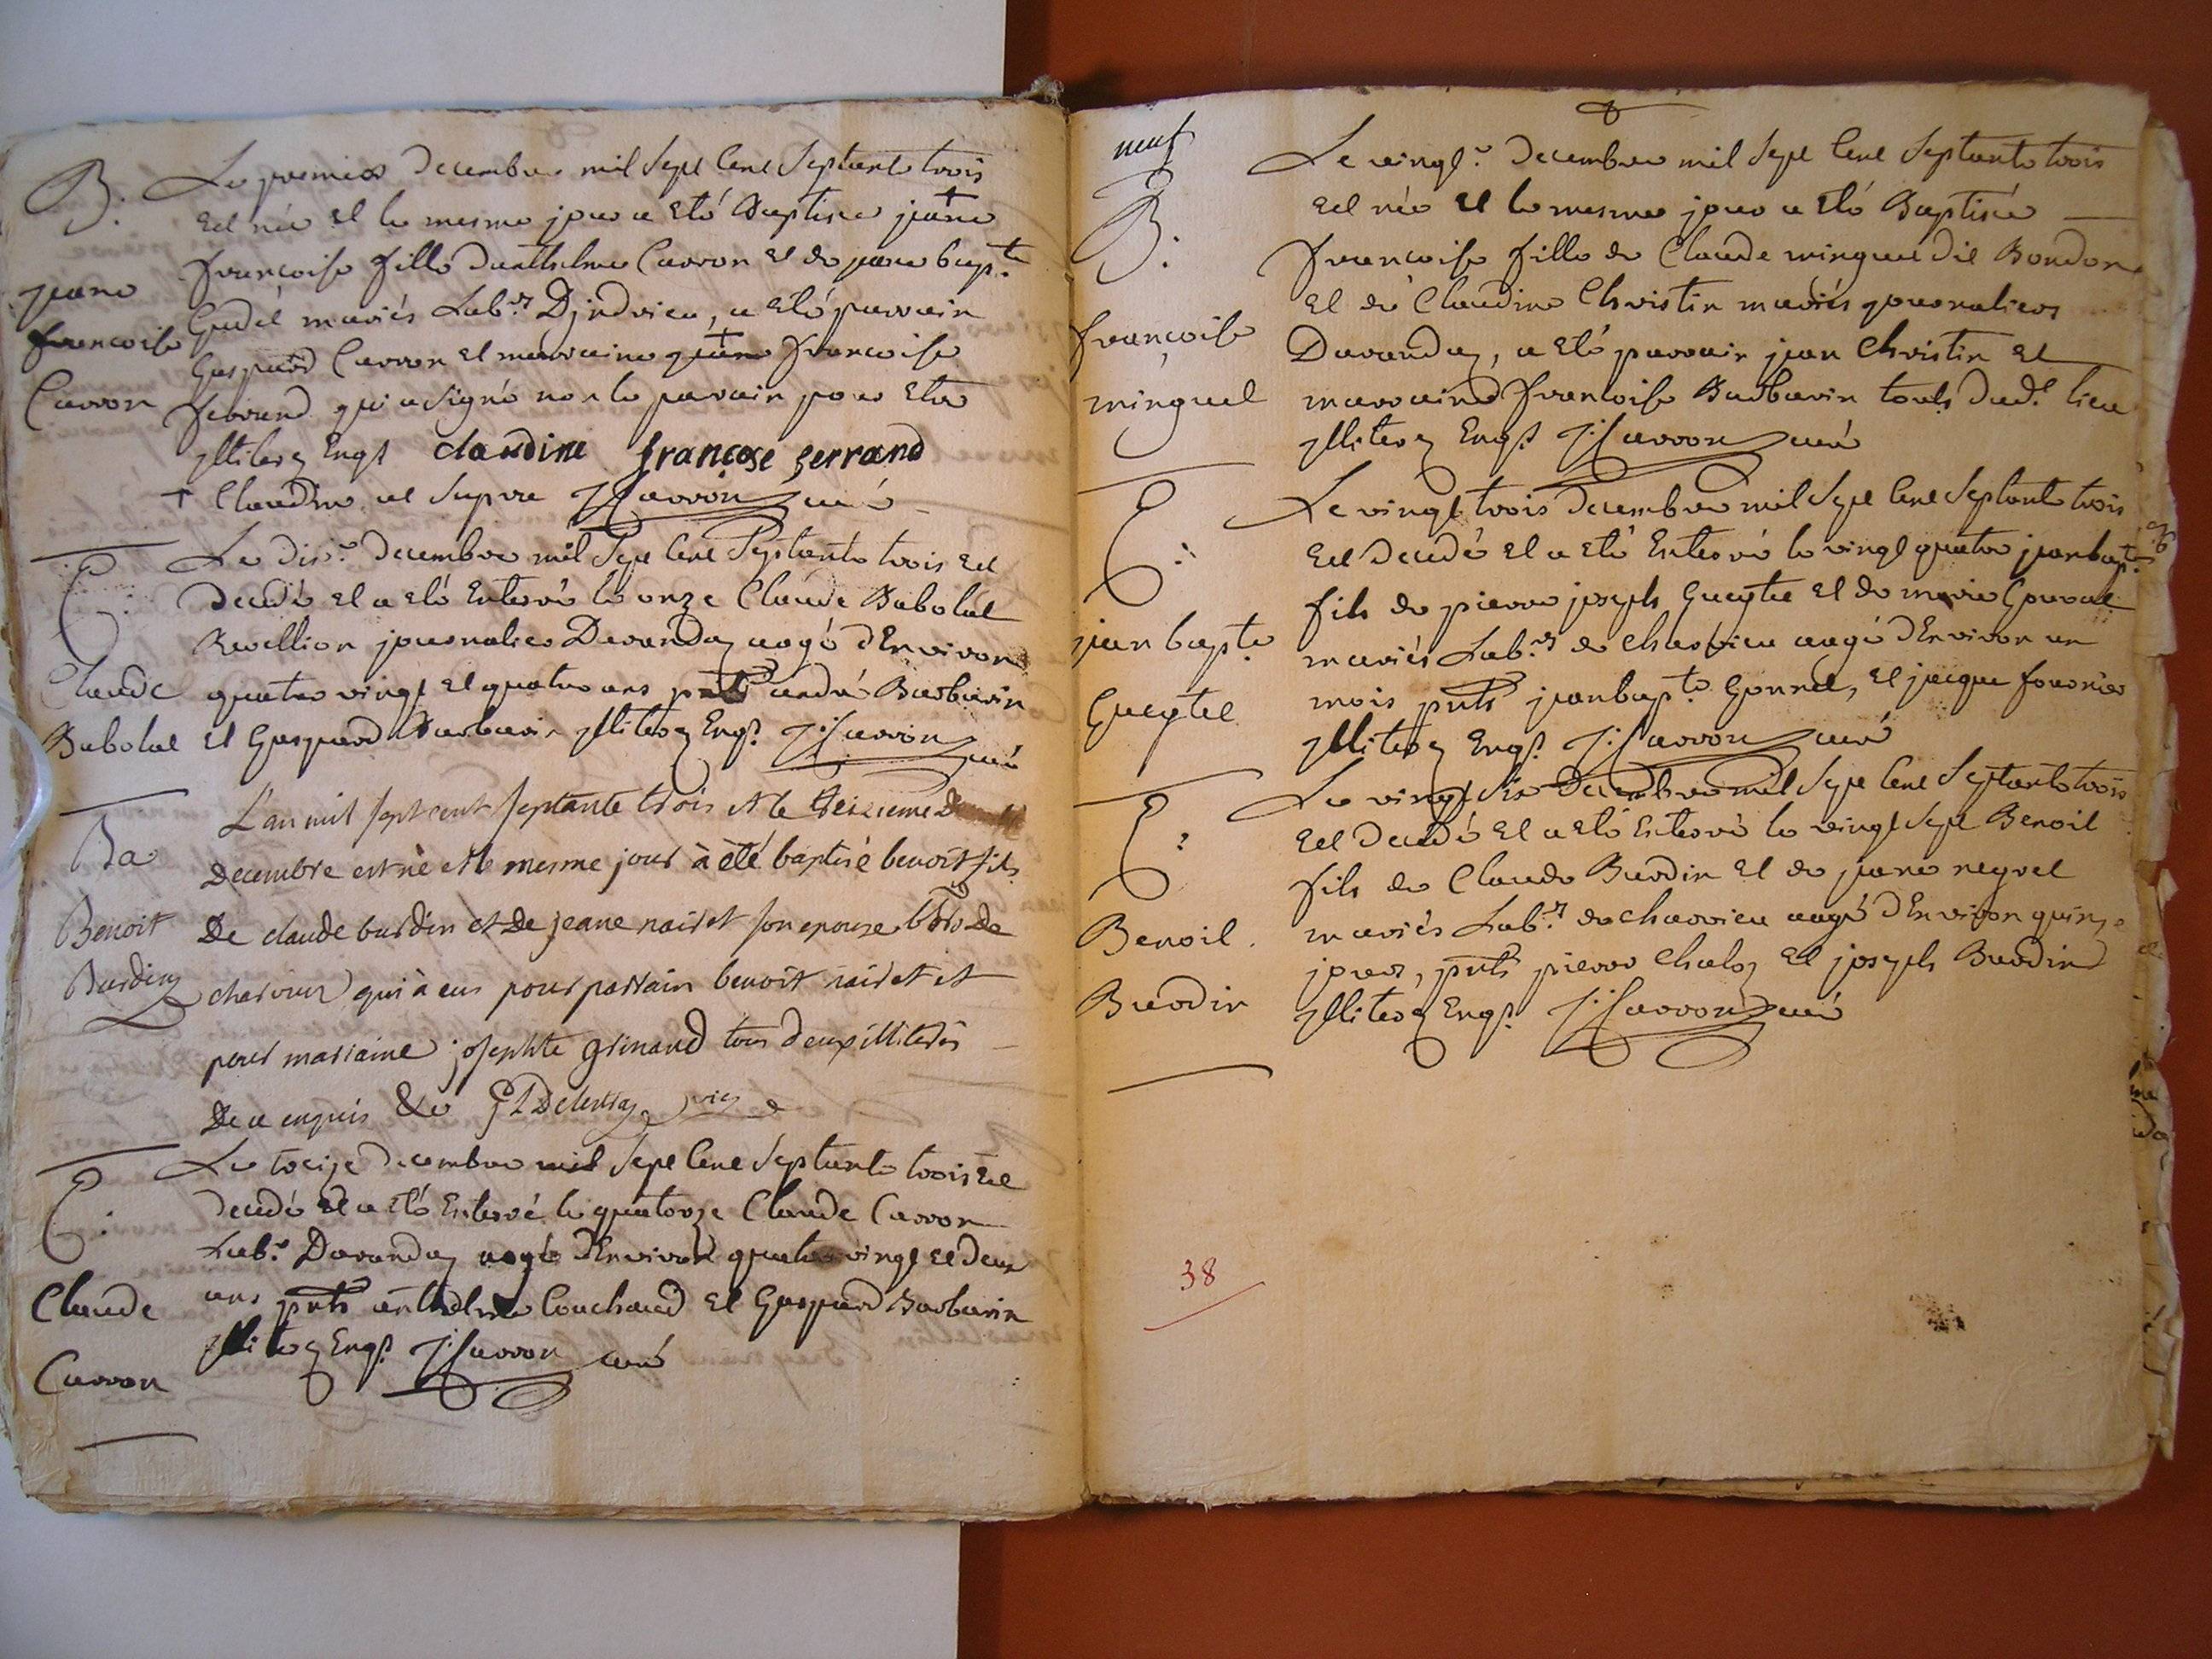 B.
Le premier Decembre mil sept cent septante trois
est née et le mesme jour a eté Baptisée jane +
françoise fille danthelme Carron et de jane bapte
Gudet mariés Labrs Djndrieu, a eté parrain
Gaspard Carron et marraine jane + françoise
ferrand qui a signé non le parrain pour etre
jlliteré Enqs claudine françose ferrand
+ Claudine ut supra J: Carron curé
jane
françoise
Carron
E:
Le dixe Decembre mil sept cent septante trois est
decedé et a eté Enterré le onze Claude Babolat
Revellion journalier Davanday aagé dEnviron
quatre vingt et quatre ans pnts andré Barbarin
et Gaspard Barbarin jlliterés Enqs J: Carron
curé
Claude
Babolat
Ba
L'an mil sept cent septante trois et le treizieme
Decembre est né et le mesme jour à èté baptisé benoit fils
De claude burdin et De jeane nairet son epouse labrs De
charvieux qui à eu pour parrain benoit nairet et
pour marraine josephte grinand tous deux illiterés
De ce enquis &c
Benoit
Burdin
E:
Le treize decembre mil sept cent septante trois est
decedé et a eté Enterré le quatorze Claude Carron
Labr Davanday aagé dEnviron quatre vingt et deux
ans pnts anthelme Couchaud et Gaspard Barbarin
jlliterés Enqs J: Carron curé
Claude
Carron
neuf
B.
Le vingte decembre mil sept cent septante trois
est née et le mesme jour a eté Baptisée
françoise fille de Claude minguet dit Bondon
et de Claudine Christin mariés journaliers
Davanday, a eté parrain jean Christin et
marraine françoise Barbarin touts dudt lieu
jlliterés Enqs J: Carron curé
françoise
minguet
E:
Le vingt trois decembre mil sept cent septante trois
est decedé et a eté Enterré le vingt quatre janbapte
fils de pierre joseph Gueytet et de marie
mariés Labrs de charvieu aagé dEnviron un
mois pnts janbapte Gonnet, et jacque fournier
jlliterés Enqs J: Carron curé
jan bapte
Gueytet
E:
Le vingt six Decembre mil sept cent septante trois
est decedé et a eté Enterré le vingt sept Benoit
fils de Claude Burdin et de jane neyret
mariés Labrs de charvieu aagé dEnviron quinze
jours, pnts pierre Chaloz et joseph Burdin
jlliterés Enqs J: Carron curé
Benoit
Burdin
38